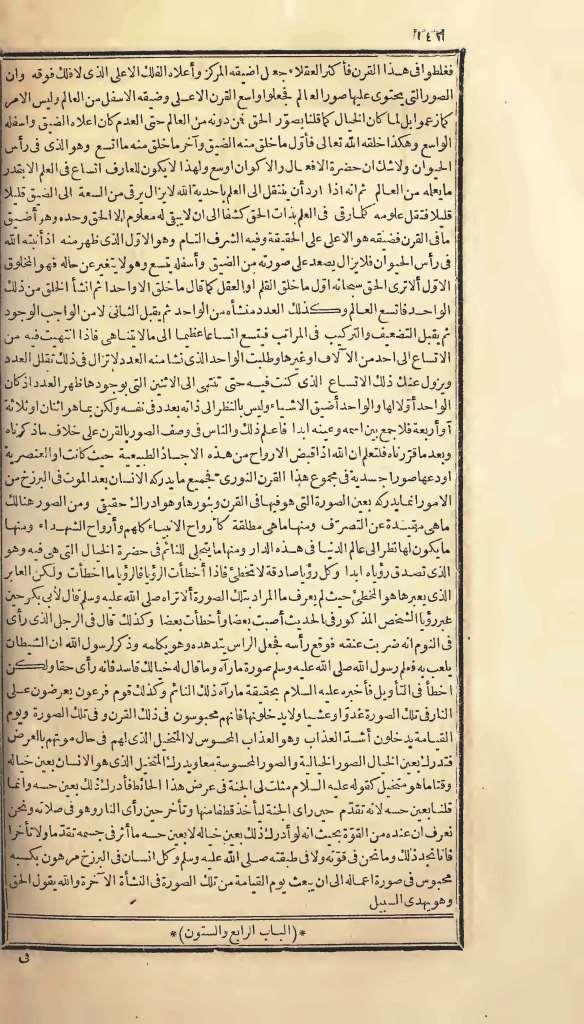 فغلطوا فى هذا القرن فأكثر العقلاء جعل أضيقه المركز وأعلاه الفلك الاعلى الذى لا فلك فوقه وان
الصور التى يحتوى عليها صور العالم فجعلوا واسع القرن الاعلى وضيقه الاسفل من العالم وليس الامر
كما زعموا بل لما كان الخيال كما قلنا يصور الحق فمن دونه من العالم حتى العدم كان أعلاه الضيق وأسفله
الواسع وهكذا خلقه الله تعالى فأول ما خلق منه الضيق وآخر ما خلق منه ما اتسع وهو الذى فى رأس
الحيوان ولا شك ان حضرة الافعال والاكوان أوسع ولهذا لا يكون للعارف اتساع فى العلم الا بقدر
ما يعلمه من العالم ثم انه اذا أراد أن ينتقل الى العلم باحدية الله لا يزال يرقى من السعة الى الضيق قليلا
قليلا فتقل علومه كلما رقى فى العلم بذات الحق كشفا الى ان لا يبقى له معلوم الا الحق وحده وهو أضيق
ما فى القرن فضيقه هو الاعلى على الحقيقة وفيه الشرف التام وهو الاول الذى ظهر منه اذ أنبته الله
فى رأس الحيوان فلا يزال يصعد على صورته من الضيق وأسفله يتسع وهو لا يتغير عن حاله فهو المخلوق
الاول ألا ترى الحق سبحانه أول ما خلق القلم أو العقل كما قال ما خلق الا واحدا ثم أنشأ الخلق من ذلك
الواحد فاتسع العالم وكذلك العدد منشأه من الواحد ثم يقبل الثانى لا من الواجب الوجود
ثم يقبل التضعيف والتركيب فى المراتب فيتسع اتساعا عظيما الى ما لا يتناهى فاذا انتهيت فيه من
الاتساع الى احد من الآلاف أو غيرها وطلبت الواحد الذى نشأ منه العدد لا تزال فى ذلك تقلل العدد
ويزول عنك ذلك الاتساع الذى كنت فيه حتى تنتهى الى الاثنين التى بوجودها ظهر العدد اذ كان
الواحد أولا لها والواحد أضيق الاشياء وليس بالنظر الى ذاته بعدد فى نفسه ولكن بما هو اثنان أو ثلاثة
أو أربعة فلا جمع بين اسمه وعينه أبدا فاعلم ذلك والناس فى وصف الصور بالقرن على خلاف ما ذكرناه
وبعد ما قررناه فلتعلم ان الله اذا قبض الارواح من هذه الاجساد الطبيعية حيث كانت أو العنصرية
أودعها صورا جسدية فى مجموع هذا القرن النورى فجميع ما يدركه الانسان بعد الموت فى البرزخ من
الامور انما يدركه بعين الصورة التى هو فيها فى القرن وبنورها وهو ادراك حقيقى ومن الصور هنالك
ما هى مقيدة عن التصرف ومنها ما هى مطلقة كأرواح الانبياء كلهم وأرواح الشهداء ومنها
ما يكون لها نظر الى عالم الدنيا فى هذه الدار ومنها ما يتجلى للنائم فى حضرة الخيال التى هى فيه وهو
الذى تصدق رؤياه أبدا وكل رؤيا صادقة لا تخطئ فاذا أخطأت الرؤيا فالرؤيا ما أخطأت ولكن العابر
الذى يعبرها هو المخطئ حيث لم يعرف ما المراد بتلك الصورة ألا تراه صلى الله عليه وسلم قال لأبى بكر حين
عبر رؤيا الشخص المذكور فى الحديث أصبت بعضا وأخطأت بعضا وكذلك قال فى الرجل الذى رأى
فى النوم انه ضربت عنقه فوقع رأسه فجعل الراس يتدهده وهو يكلمه وذكر لرسول الله ان الشيطان
يلعب به فعلم رسول الله صلى الله عليه وسلم صورة ما رآه وما قال له خيالك فاسد فانه رأى حقا ولكن
اخطأ فى التأويل فأخبره عليه السلام بحقيقة ما رآه ذلك النائم وكذلك قوم فرعون يعرضون على
النار فى تلك الصورة غدوا وعشيا ولا يدخلونها فانهم محبوسون فى ذلك القرن وفى تلك الصورة ويوم
القيامة يدخلون أشد العذاب وهو العذاب المحسوس لا المتخيل الذى لهم فى حال موتهم بالعرض
فتدرك بعين الخيال الصور الخيالية والصور المحسوسة معا ويدرك المتخيل الذى هو الانسان بعين خياله
وقتا ما هو متخيل كقوله عليه السلام مثلت لى الجنة فى عرض هذا الحائط فأدرك ذلك بعين حسه وانما
قلنا بعين حسه لانه تقدم حين رأى الجنة ليأخذ قطفا منها وتأخر حين رأى النار وهو فى صلاته ونحن
نعرف ان عنده من القوة بحيث انه لو أدرك ذلك بعين خياله لا بعين حسه ما أثر فى جسمه تقدما ولا تأخرا
فانا نجد ذلك وما نحن فى قوته ولا فى طبقته صلى الله عليه وسلم وكل انسان فى البرزخ مرهون بكسبه
محبوس فى صورة أعماله الى ان يبعث يوم القيامة من تلك الصورة فى النشأة الآخرة والله يقول الحق
وهو يهدى السبيل
*(الباب الرابع والستون)*
فى